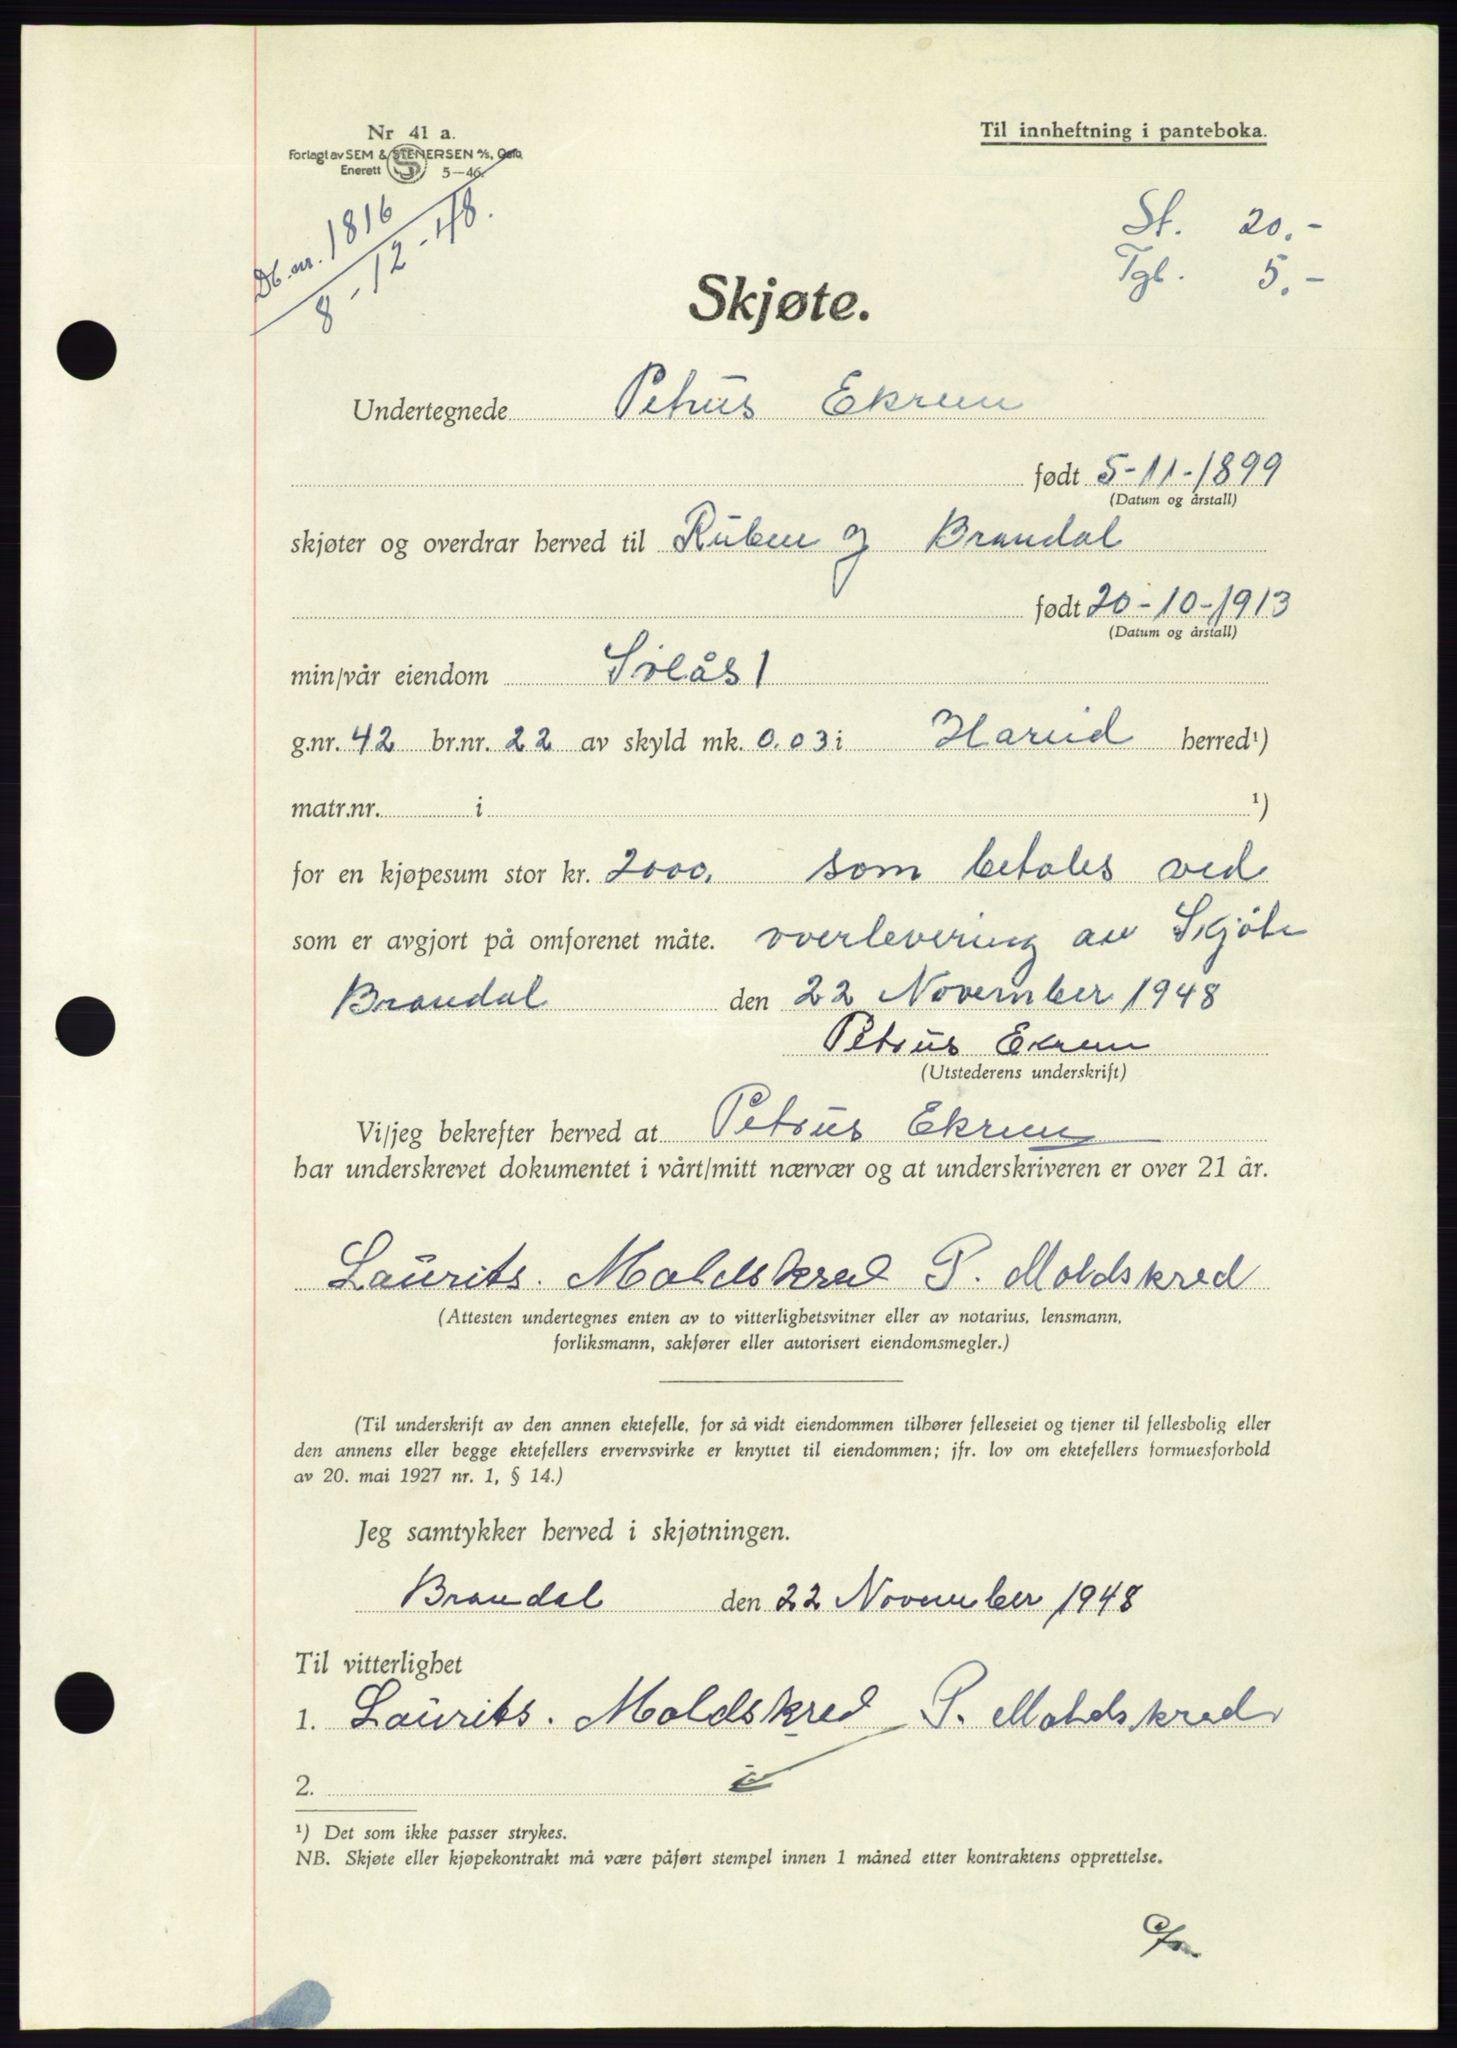 Nr 41 a.
Forlagt av SEM & STENERSEN A/S, Oslo
Enerett 5—46.
Til innheftning i panteboka.
Db. nr. 1816
8-12-48.
St. 20.-
Tgl. 5.-
Skjøte.
Undertegnede Petrus Ekrem
født 5-11-1899
(Datum og årstall)
skjøter og overdrar herved til Ruben J Brandal
født 20-10-1913
(Datum og årstall)
min/vår eiendom Solås 1
g.nr. 42 br.nr. 22 av skyld mk. 0.03 i Hareid herred¹)
matr.nr. i ¹)
for en kjøpesum stor kr. 2000. som betales ved
som er avgjort på omforenet måte. overlevering av Skjöte
Brandal den 22 November 1948
Petrus Ekrem
(Utstederens underskrift)
Vi/jeg bekrefter herved at Petrus Ekrem
har underskrevet dokumentet i vårt/mitt nærvær og at underskriveren er over 21 år.
Laurits. Moldskred P. Moldskred
(Attesten undertegnes enten av to vitterlighetsvitner eller av notarius, lensmann,
forliksmann, sakfører eller autorisert eiendomsmegler.)
(Til underskrift av den annen ektefelle, for så vidt eiendommen tilhører felleseiet og tjener til fellesbolig eller
den annens eller begge ektefellers ervervsvirke er knyttet til eiendommen; jfr. lov om ektefellers formuesforhold
av 20. mai 1927 nr. 1, § 14.)
Jeg samtykker herved i skjøtningen.
Brandal den 22 November 1948
Til vitterlighet
1. Laurits. Moldskred P. Moldskred
2.
¹) Det som ikke passer strykes.
NB. Skjøte eller kjøpekontrakt må være påført stempel innen 1 måned etter kontraktens opprettelse.